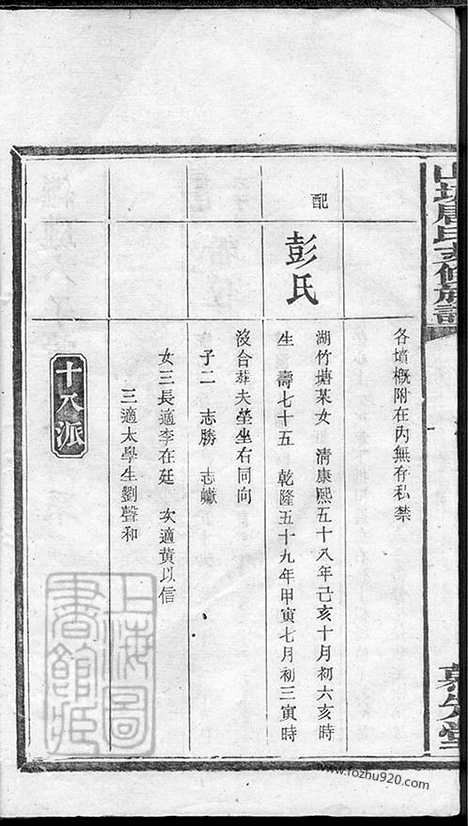 各墳概附在內無有私禁
配
彭氏
湖竹塘某女　清康熙五十八年己亥十月初六亥時
生　壽七十五　乾隆五十九年甲寅七月初三寅時
沒合葬夫塋坐右同向
子二　志勝　志
女三長適李在廷　次適黃以信
三適太學生劉聲和
十八派
上海圖書館藏
https://www.fozhu920.com